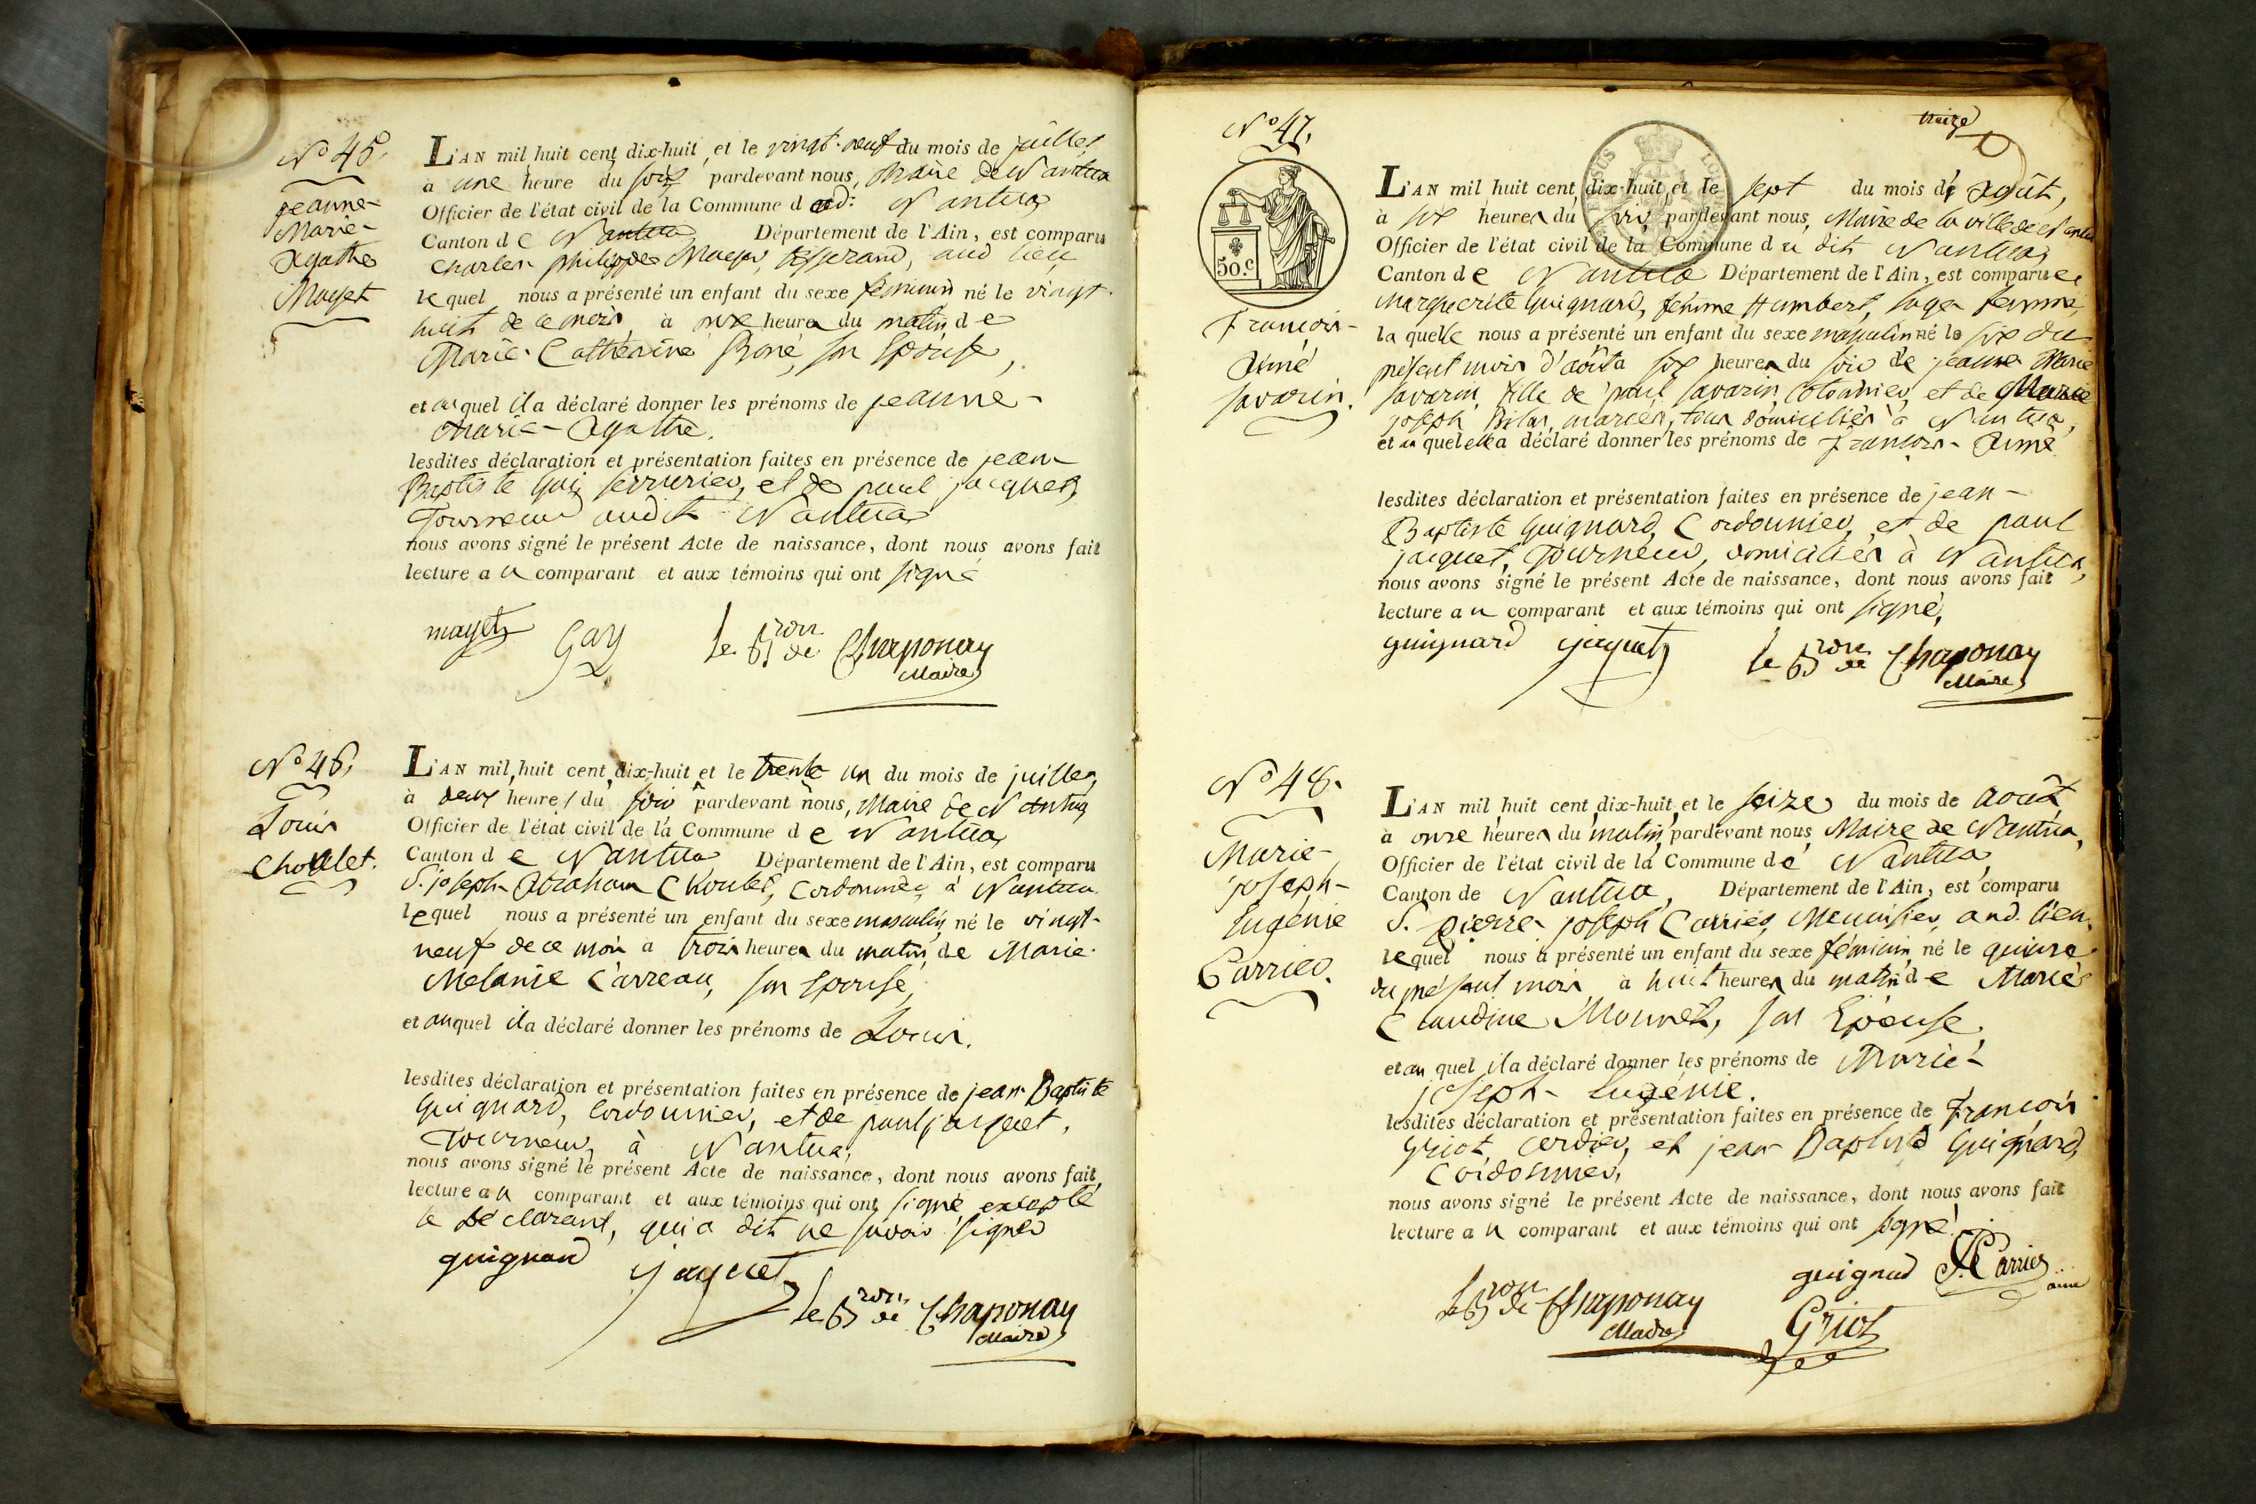 N° 45.
Jeanne-
Marie-
Agathe
Mayet
L'AN mil huit cent dix-huit, et le vingt-neuf du mois de juillet
à une heure du soir pardevant nous, Maire de Nantua
Officier de l'état civil de la Commune d ud: Nantua
Canton de Nantua Département de l'Ain, est comparu
Charles philippe Mayet, tisserand, aud lieu,
lequel nous a présenté un enfant du sexe féminin né le vingt-
huit de ce mois, à onze heures du matin, de
Marie-Catherine Boné, son Epouse,
et auquel il a déclaré donner les prénoms de jeanne-
Marie-Agathe.
lesdites déclaration et présentation faites en présence de jean
Baptiste Gai, serrurier, et de paul jacquet,
Tourneur audit Nantua
nous avons signé le présent Acte de naissance, dont nous avons fait
lecture au comparant et aux témoins qui ont signé
mayet Gay le Bron de Chaponay
Maire
N° 46.
Louis
Choulet.
L'AN mil huit cent dix-huit et le trente un du mois de juillet,
à deux heures du soir pardevant nous, Maire de Nantua
Officier de l'état civil de la Commune de Nantua
Canton de Nantua Département de l'Ain, est comparu
S. joseph Abraham Choulet, Cordonnier, à Nantua
lequel nous a présenté un enfant du sexe masculin né le vingt-
neuf de ce mois à trois heures du matin, de Marie-
Melanie Carreau, son Epouse,
et auquel il a déclaré donner les prénoms de Louis.
lesdites déclaration et présentation faites en présence de jean Baptiste
Guignard, Cordonnier, et de paul jacquet,
Tourneur, à Nantua,
nous avons signé le présent Acte de naissance, dont nous avons fait
lecture au comparant et aux témoins qui ont signé excepté
le Déclarant, qui a dit ne savoir signer
guignard jaquet
le Bron de Chaponay
Maire
treize
N° 47.
50.c
François-
Aimé
Savarin.
L'AN mil huit cent dix-huit, et le sept du mois d'Août,
à six heures du soir, pardevant nous, Maire de la ville de Nantua
Officier de l'état civil de la Commune du dit Nantua
Canton de Nantua Département de l'Ain, est comparue
Marguerite Guignard, femme Humbert, sage femme,
laquelle nous a présenté un enfant du sexe masculin né le six du
présent mois d'août à six heures du soir de jeanne Marie
Savarin, fille de paul Savarin, Cotonnier, et de Marie
joseph mariés, tous domiciliés à Nantua,
et auquel elle a déclaré donner les prénoms de François-Aimé
lesdites déclaration et présentation faites en présence de jean-
Baptiste Guignard, Cordonnier, et de paul
jacquet, Tourneur, domiciliés à Nantua,
nous avons signé le présent Acte de naissance, dont nous avons fait
lecture au comparant et aux témoins qui ont signé,
guignard jaquet le Bron de Chaponay
Maire
N° 48.
Marie-
joseph-
Eugénie
Carrier.
L'AN mil huit cent dix-huit, et le seize du mois de août,
à onze heures du matin, pardevant nous, Maire de Nantua,
Officier de l'état civil de la Commune de Nantua,
Canton de Nantua, Département de l'Ain, est comparu
S. pierre joseph Carrier, Menuisier, aud. lieu,
lequel nous a présenté un enfant du sexe féminin, né le quinze
du présent mois à huit heures du matin de Marie
Claudine Monnet, son Epouse.
et auquel il a déclaré donner les prénoms de Marie-
joseph-Eugénie.
lesdites déclaration et présentation faites en présence de françois
Griot, cordier, et jean Baptiste Guignard,
Cordonnier,
nous avons signé le présent Acte de naissance, dont nous avons fait
lecture au comparant et aux témoins qui ont signé.
guignard Carrier
aine
le Bron de Chaponay
Maire
Griot